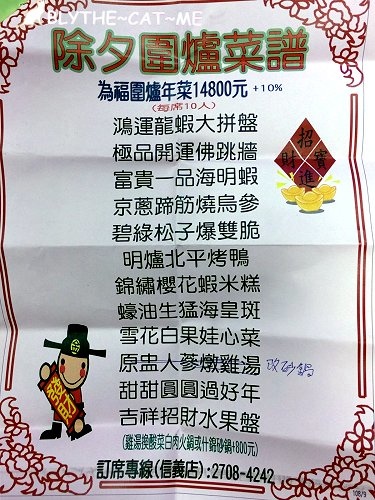 BLYTHE~CAT~ME
除夕圍爐菜譜
為福圍爐年菜14800元 +10%
(每席10人)
鴻運龍蝦大拼盤
極品開運佛跳牆
富貴一品海明蝦
京蔥蹄筋燒烏參
碧綠松子爆雙脆
明爐北平烤鴨
錦繡櫻花蝦米糕
蠔油生猛海皇斑
雪花白果娃心菜
原盅人蔘燉雞湯 改砂鍋
甜甜圓圓過好年
吉祥招財水果盤
(雞湯換酸菜白肉火鍋或什錦砂鍋+800元)
訂席專線(信義店):2708-4242
招財進寶
發財
108/9